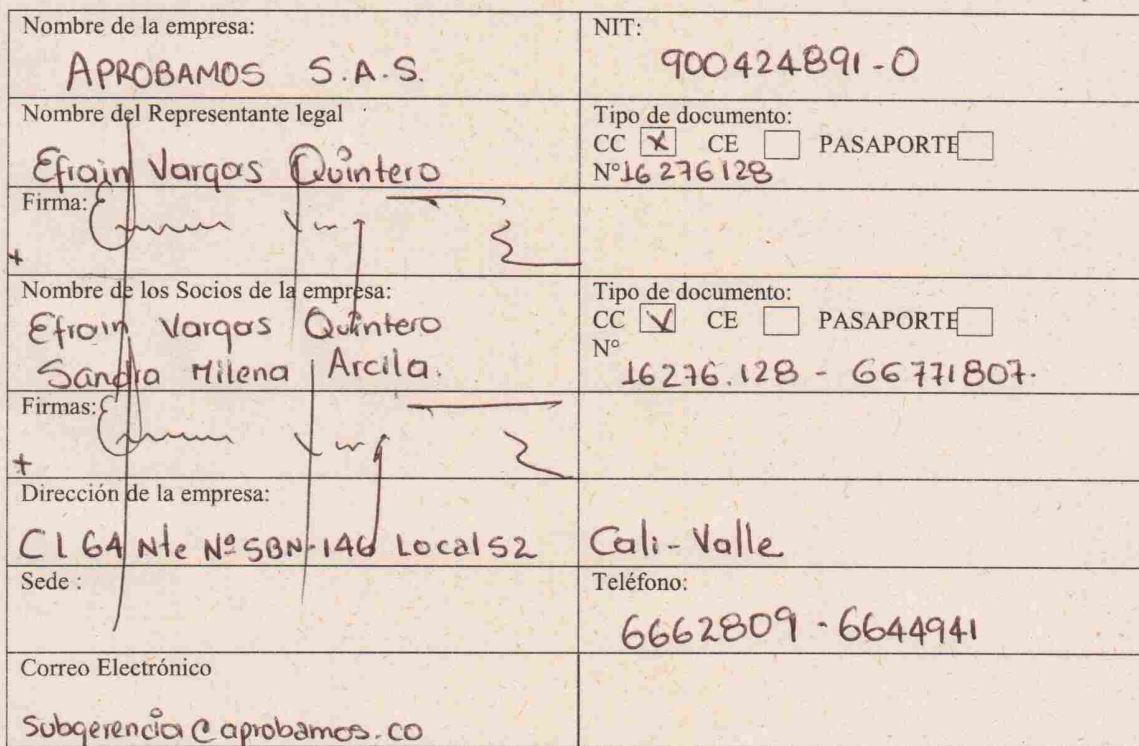 Nombre de la empresa:
APROBAMOS S.A.S.
NIT:
900424891-0
Nombre del Representante legal
Efrain Vargas Quintero
Tipo de documento:
CC X CE PASAPORTE
N°16276128
Firma:
Nombre de los Socios de la empresa:
Efrain Vargas Quintero
Sandra Milena Arcila.
Tipo de documento:
CC X CE PASAPORTE
N°
16276.128 - 66771807.
Firmas:
Dirección de la empresa:
Cl 64 Nte Nº 5BN-146 Local 52
Cali-Valle
Sede :
Teléfono:
6662809 - 6644941
Correo Electrónico
Subgerencia@aprobamos.co